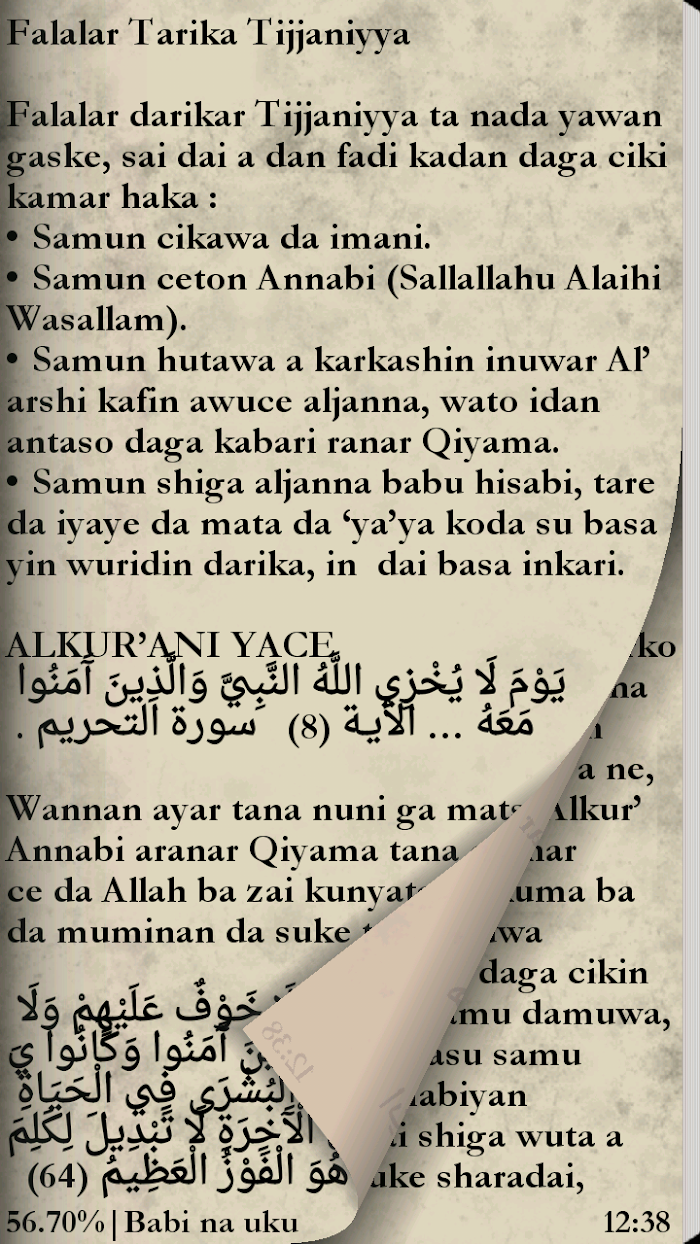 Falalar Tarika Tijjaniyya
Falalar darikar Tijjaniyya ta nada yawan
gaske, sai dai a dan fadi kadan daga ciki
kamar haka :
• Samun cikawa da imani.
• Samun ceton Annabi (Sallallahu Alaihi
Wasallam).
• Samun hutawa a karkashin inuwar Al’
arshi kafin awuce aljanna, wato idan
antaso daga kabari ranar Qiyama.
• Samun shiga aljanna babu hisabi, tare
da iyaye da mata da ‘ya’ya koda su basa
yin wuridin darika, in dai basa inkari.
ALKUR’ANI YACE
يَوْمَ لَا يُخْزِي اللَّهُ النَّبِيَّ وَالَّذِينَ آَمَنُوا
مَعَهُ ... الأية (8) سورة التحريم .
a ne,
Wannan ayar tana nuni ga Alkur’
Annabi aranar Qiyama tana
ce da Allah ba zai ba
da muminan da suke
daga cikin
خَوْفٌ عَلَيْهِمْ وَلَا
damuwa,
آَمَنُوا وَكَانُوا
samu
الْبُشْرَى فِي الْحَيَاةِ
الْآَخِرَةِ لَا تَبْدِيلَ
shiga wuta a
هُوَ الْفَوْزُ الْعَظِيمُ (64)
sharadai,
56.70%|Babi na uku 12:38